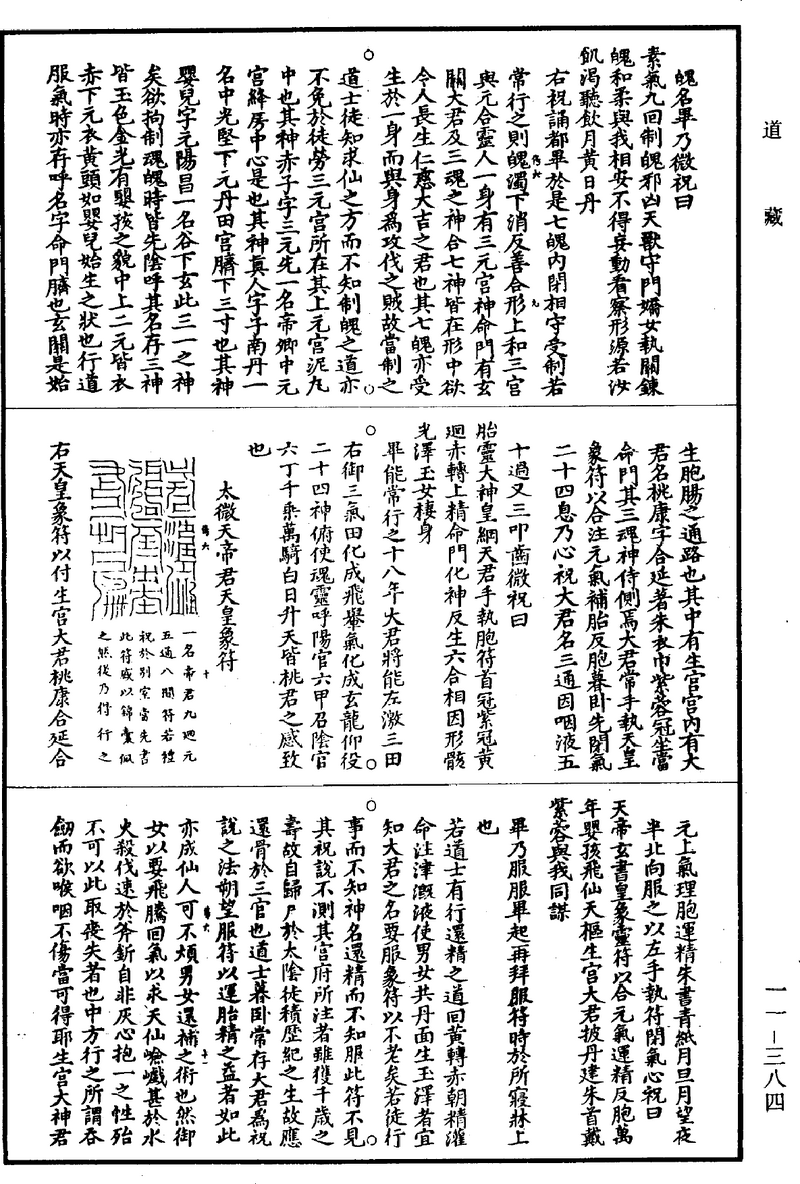 道藏
魄名畢乃微祝曰
素氣九回制魄邪凶天獸守門嬌女執關鍊
魄和柔與我相安不得妄動看察形源若汝
飢渴聽飲月黃日丹
右祝誦都畢於是七魄內閉相守受制若
常行之則魄濁下消反善合形上和三宮
與元合靈人一身有三元宮神命門有玄
關大君及三魂之神合七神皆在形中欲
令人長生仁慈大吉之君也其七魄亦受
生於一身而與身爲攻伐之賊故當制之
道士徒知求仙之方而不知制魄之道亦
不免於徒勞三元宮所在其上元宮泥丸
中也其神赤子字三元先一名帝卿中元
宮絳房中心是也其神真人字子南丹一
名中光堅下元丹田宮臍下三寸也其神
嬰兒字元陽昌一名谷下玄此三一之神
矣欲拘制魂魄時皆先陰呼其名存三神
皆玉色金光有嬰孩之貌中上二元皆衣
赤下元衣黃頭如嬰兒始生之狀也行道
服氣時亦存呼名字命門臍也玄關是始
生胞腸之通路也其中有生宮宮內有大
君名桃康字合延著朱衣巾紫蓉冠坐當
命門其三魂神侍側焉大君常手執天皇
象符以合注元氣補胎反胞暮卧先閉氣
二十四息乃心祝大君名三通因咽液五
十過又三叩齒微祝曰
胎靈大神皇綱天君手執胞符首冠紫冠黃
迴赤轉上精命門化神反生六合相因形骸
光澤玉女棲身
畢能常行之十八年大君將能左激三田
右御三氣田化成飛轝氣化成玄龍仰役
二十四神俯使魂靈呼陽官六甲召陰官
六丁千乘萬騎白日升天皆桃君之感致
也
太微天帝君天皇象符
一名帝君九迴元
五通八間符若禋
祝於別室當先書
此符盛以錦囊佩
之然後乃得行之
右天皇象符以付生宮大君桃康合延合
元上氣理胞運精朱書青紙月旦月望夜
半北向服之以左手執符閉氣心祝曰
天帝玄書皇象靈符以合元氣運精反胞萬
年嬰孩飛仙天樞生宮大君披丹建朱首戴
紫蓉與我同謀
畢乃服服畢起再拜服符時於所寢牀上
也
若道士有行還精之道回黃轉赤朝精灌
命注津溉液使男女共丹面生玉澤者宜
知大君之名要服象符以不老矣若徒行
事而不知神名還精而不知服此符不見
其祝說不測其宮府所注者雖獲千歲之
壽故自歸尸於太陰徒積歷紀之生故應
還骨於三官也道士暮卧常存大君爲祝
說之法朔望服符以運胎精之益者如此
亦成仙人可不煩男女還補之術也然御
女以要飛騰回氣以求天仙嶮巇甚於水
火殺伐速於斧斨自非灰心抱一之性殆
不可以此取喪失者也中方行之所謂吞
劒而欲喉咽不傷當可得耶生宮大神君
一一－三八四